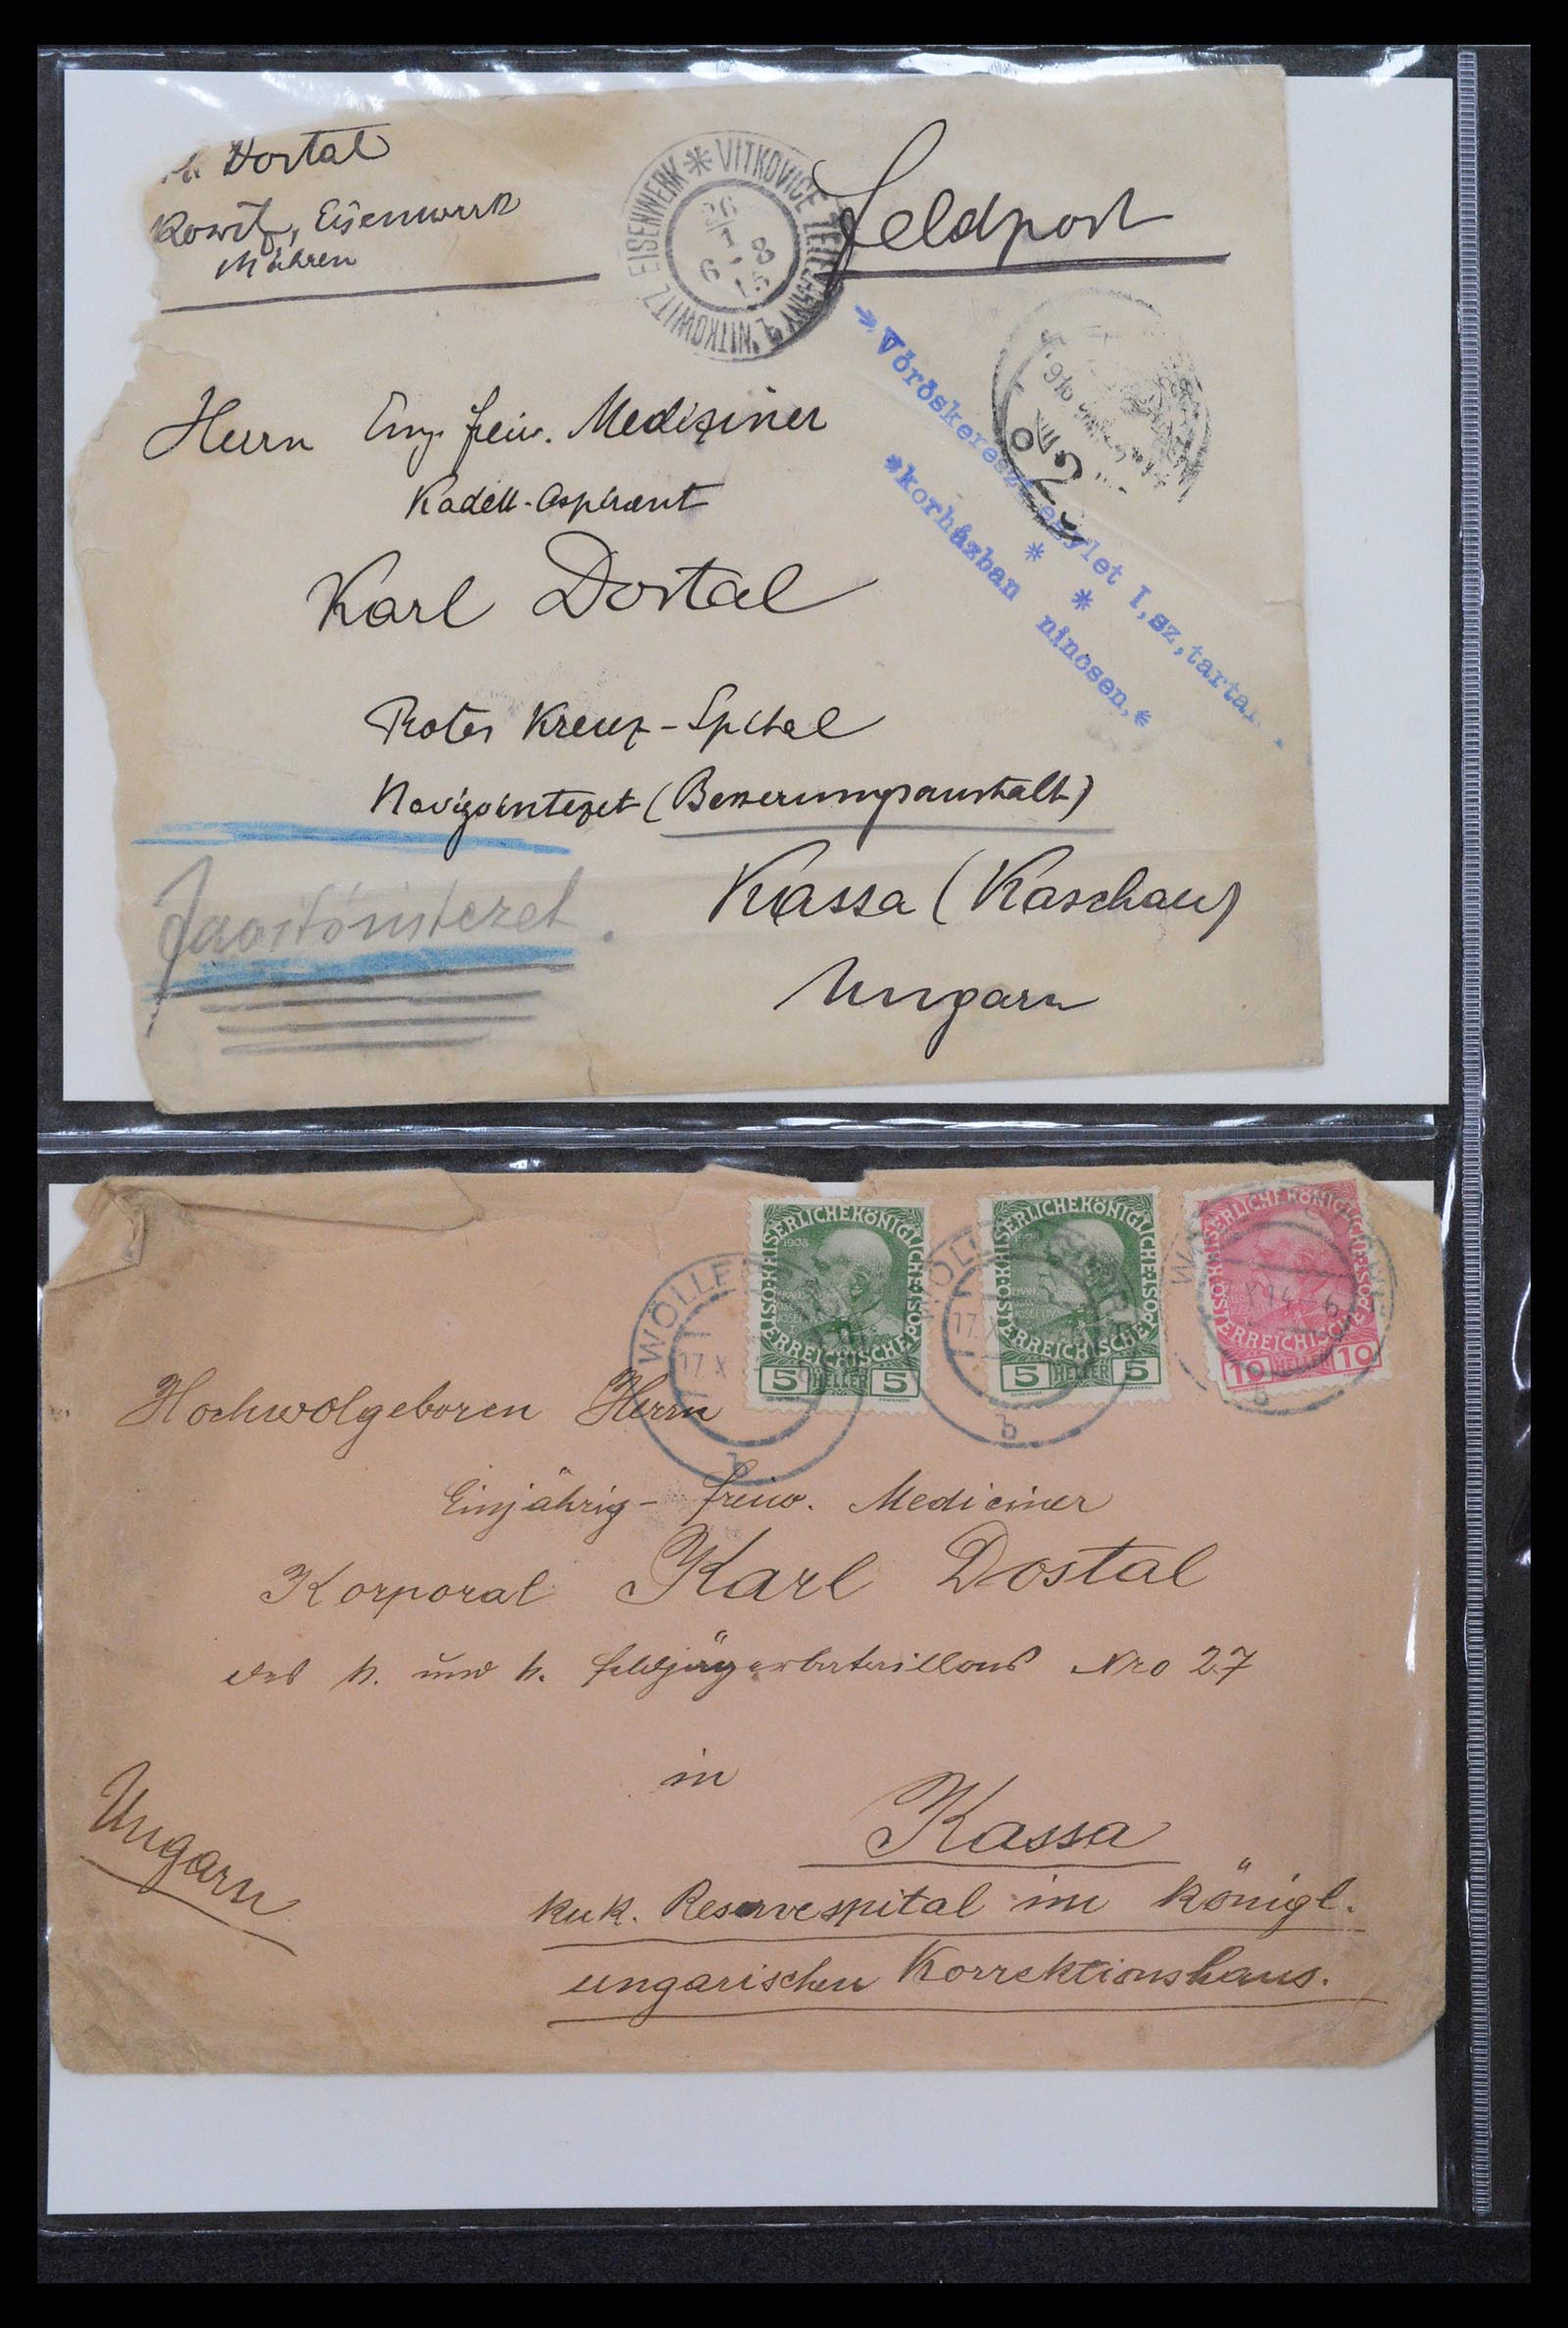 Dostal
Eisenwerk
Mähren
VITKOVICE ŽELEZÁRNY * WITKOWITZ EISENWERK *
26
1 8
6 15
Feldpost
Vöröskereszt egylet I,sz,tarta
*korházban nincsen,*
* *
Herrn Einj. freiw. Mediziner
Kadett-Aspirant
Karl Dostal
Rotes Kreuz-Spital
Navizointezet (Besserungsanstalt)
Kassa (Kaschau)
Ungarn
Javítóintézet.
KAISERLICHE KÖNIGLICHE ÖSTERREICHISCHE POST
1908
5 HELLER 5
KAISERLICHE KÖNIGLICHE ÖSTERREICHISCHE POST
5 HELLER 5
KAISERLICHE KÖNIGLICHE ÖSTERREICHISCHE POST
10 HELLER 10
17 X
b
17. X
b
X 14 - 6
b
Hochwolgeboren Herrn
Einjährig - freiw. Mediciner
Korporal Karl Dostal
des k. und k. Feldjägerbataillons Nro 27
in
Kassa
Ungarn
k.u.k. Reservespital im königl.
ungarischen Korrektionshaus.